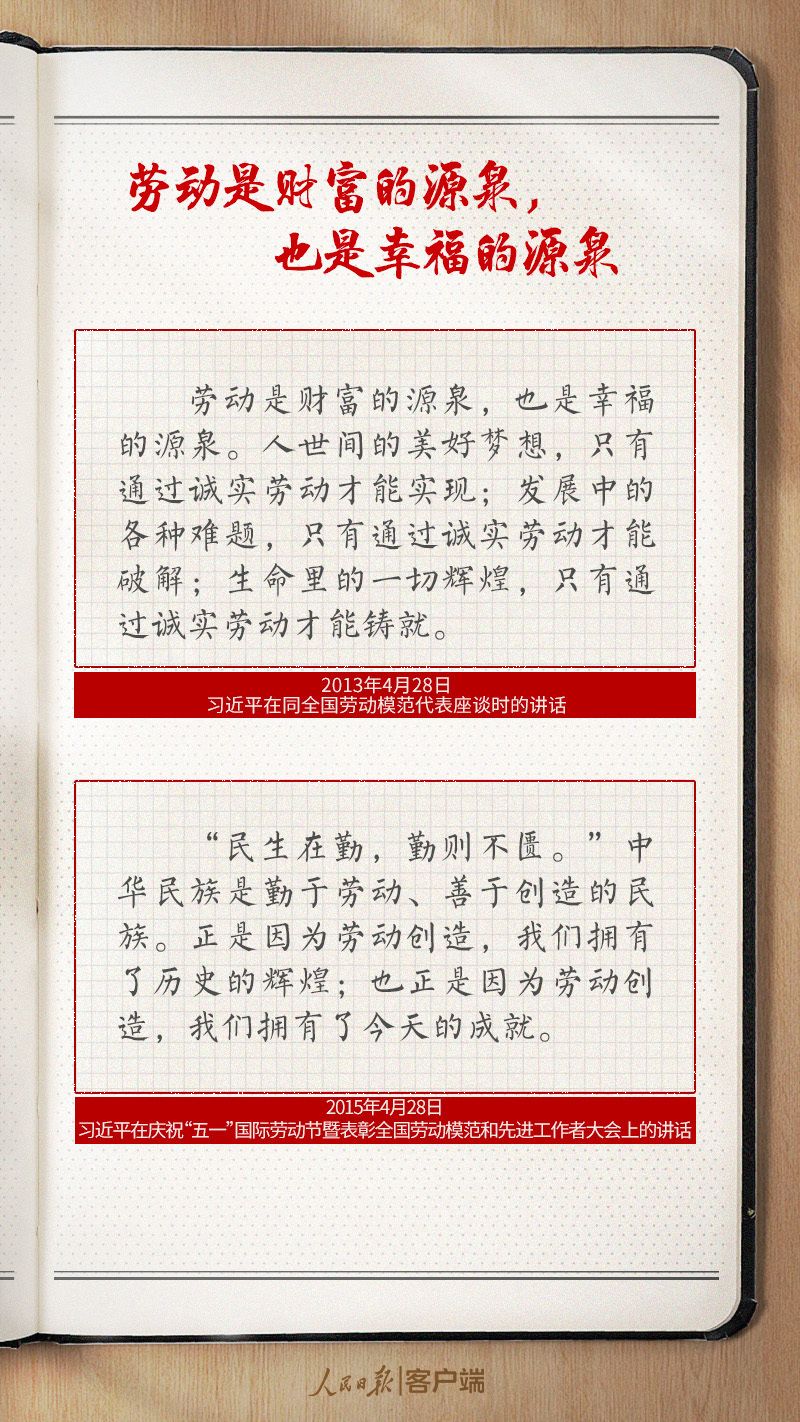 劳动是财富的源泉，
也是幸福的源泉
劳动是财富的源泉，也是幸福
的源泉。人世间的美好梦想，只有
通过诚实劳动才能实现；发展中的
各种难题，只有通过诚实劳动才能
破解；生命里的一切辉煌，只有通
过诚实劳动才能铸就。
2013年4月28日
习近平在同全国劳动模范代表座谈时的讲话
“民生在勤，勤则不匮。”中
华民族是勤于劳动、善于创造的民
族。正是因为劳动创造，我们拥有
了历史的辉煌；也正是因为劳动创
造，我们拥有了今天的成就。
2015年4月28日
习近平在庆祝“五一”国际劳动节暨表彰全国劳动模范和先进工作者大会上的讲话
人民日报|客户端